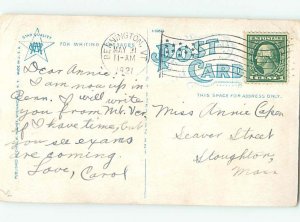 FOR WRITING MESSAGES
BENNINGTON, VT.
MAY 31
11-AM
1921
POST
CARD
1 CENT 1
THIS SPACE FOR ADDRESS ONLY.
Dear Annie,
I am now up in
Benn. I will write
you from Mt. Ver.
if I have time, but
you see exams
are coming.
Love, Carol
Miss Annie Capen
Seaver Street
Stoughton,
Mass.